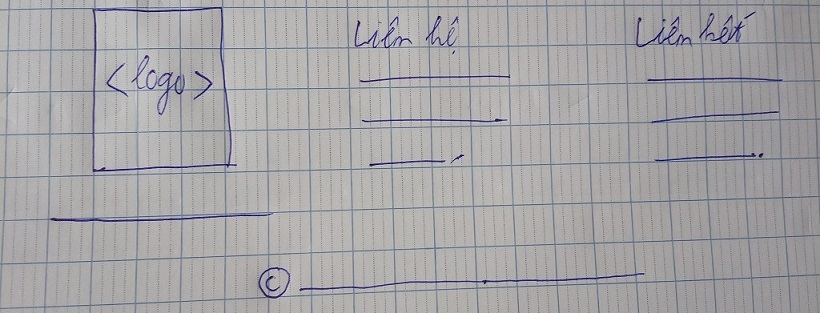 <logo>
Liên hệ
Liên kết
©